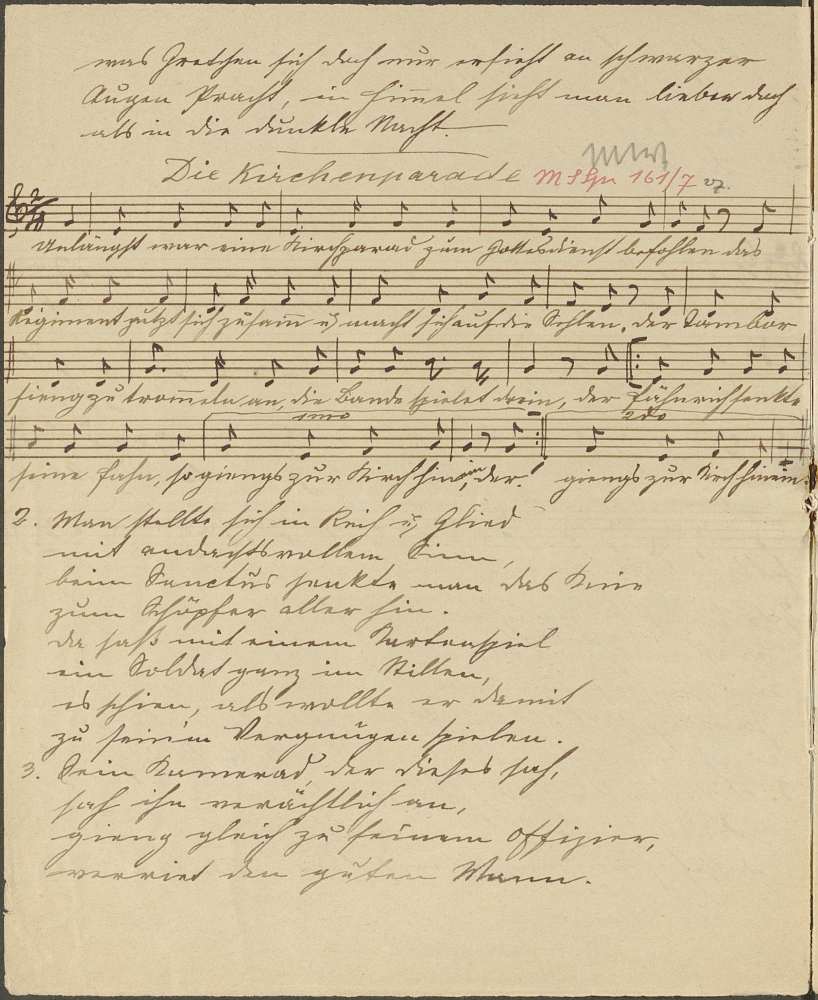 was Gretchen sich doch nur ersieht an schwarzer
Augen Pracht, in Himmel sieht man lieber doch
als in die dunkle Nacht.
Die Kirchenparade M S Spr 161/7
Unlängst war eine Kirchparad zum Gottesdienst befohlen das
Regiment putzt sich zusam̄ u. macht sich auf die Sohlen, der Tambor
fieng zu trom̄eln an, die Bande spielet drein, der Fähnrich senkte
1mo 2do
seine Fahn, so giengs zur Kirch hinein, der. giengs zur Kirch hinein.
2. Man stellte sich in Reih u. Glied
mit andachtsvollem Sinn,
beim Sanctus senkte man das Knie
zum Schöpfer aller hin.
da saß mit einem Kartenspiel
ein Soldat ganz im Stillen,
es schien, als wollte er damit
zu seinem Vergnügen spielen.
3. Sein Kamerad, der dieses sah,
sah ihn verächtlich an,
gieng gleich zu seinem Offizier,
verriet den guten Mann.